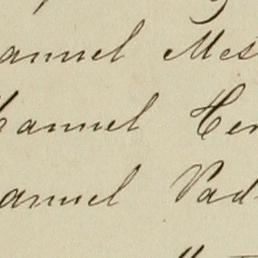 anuel Mes
Manuel Her
anuel Vad